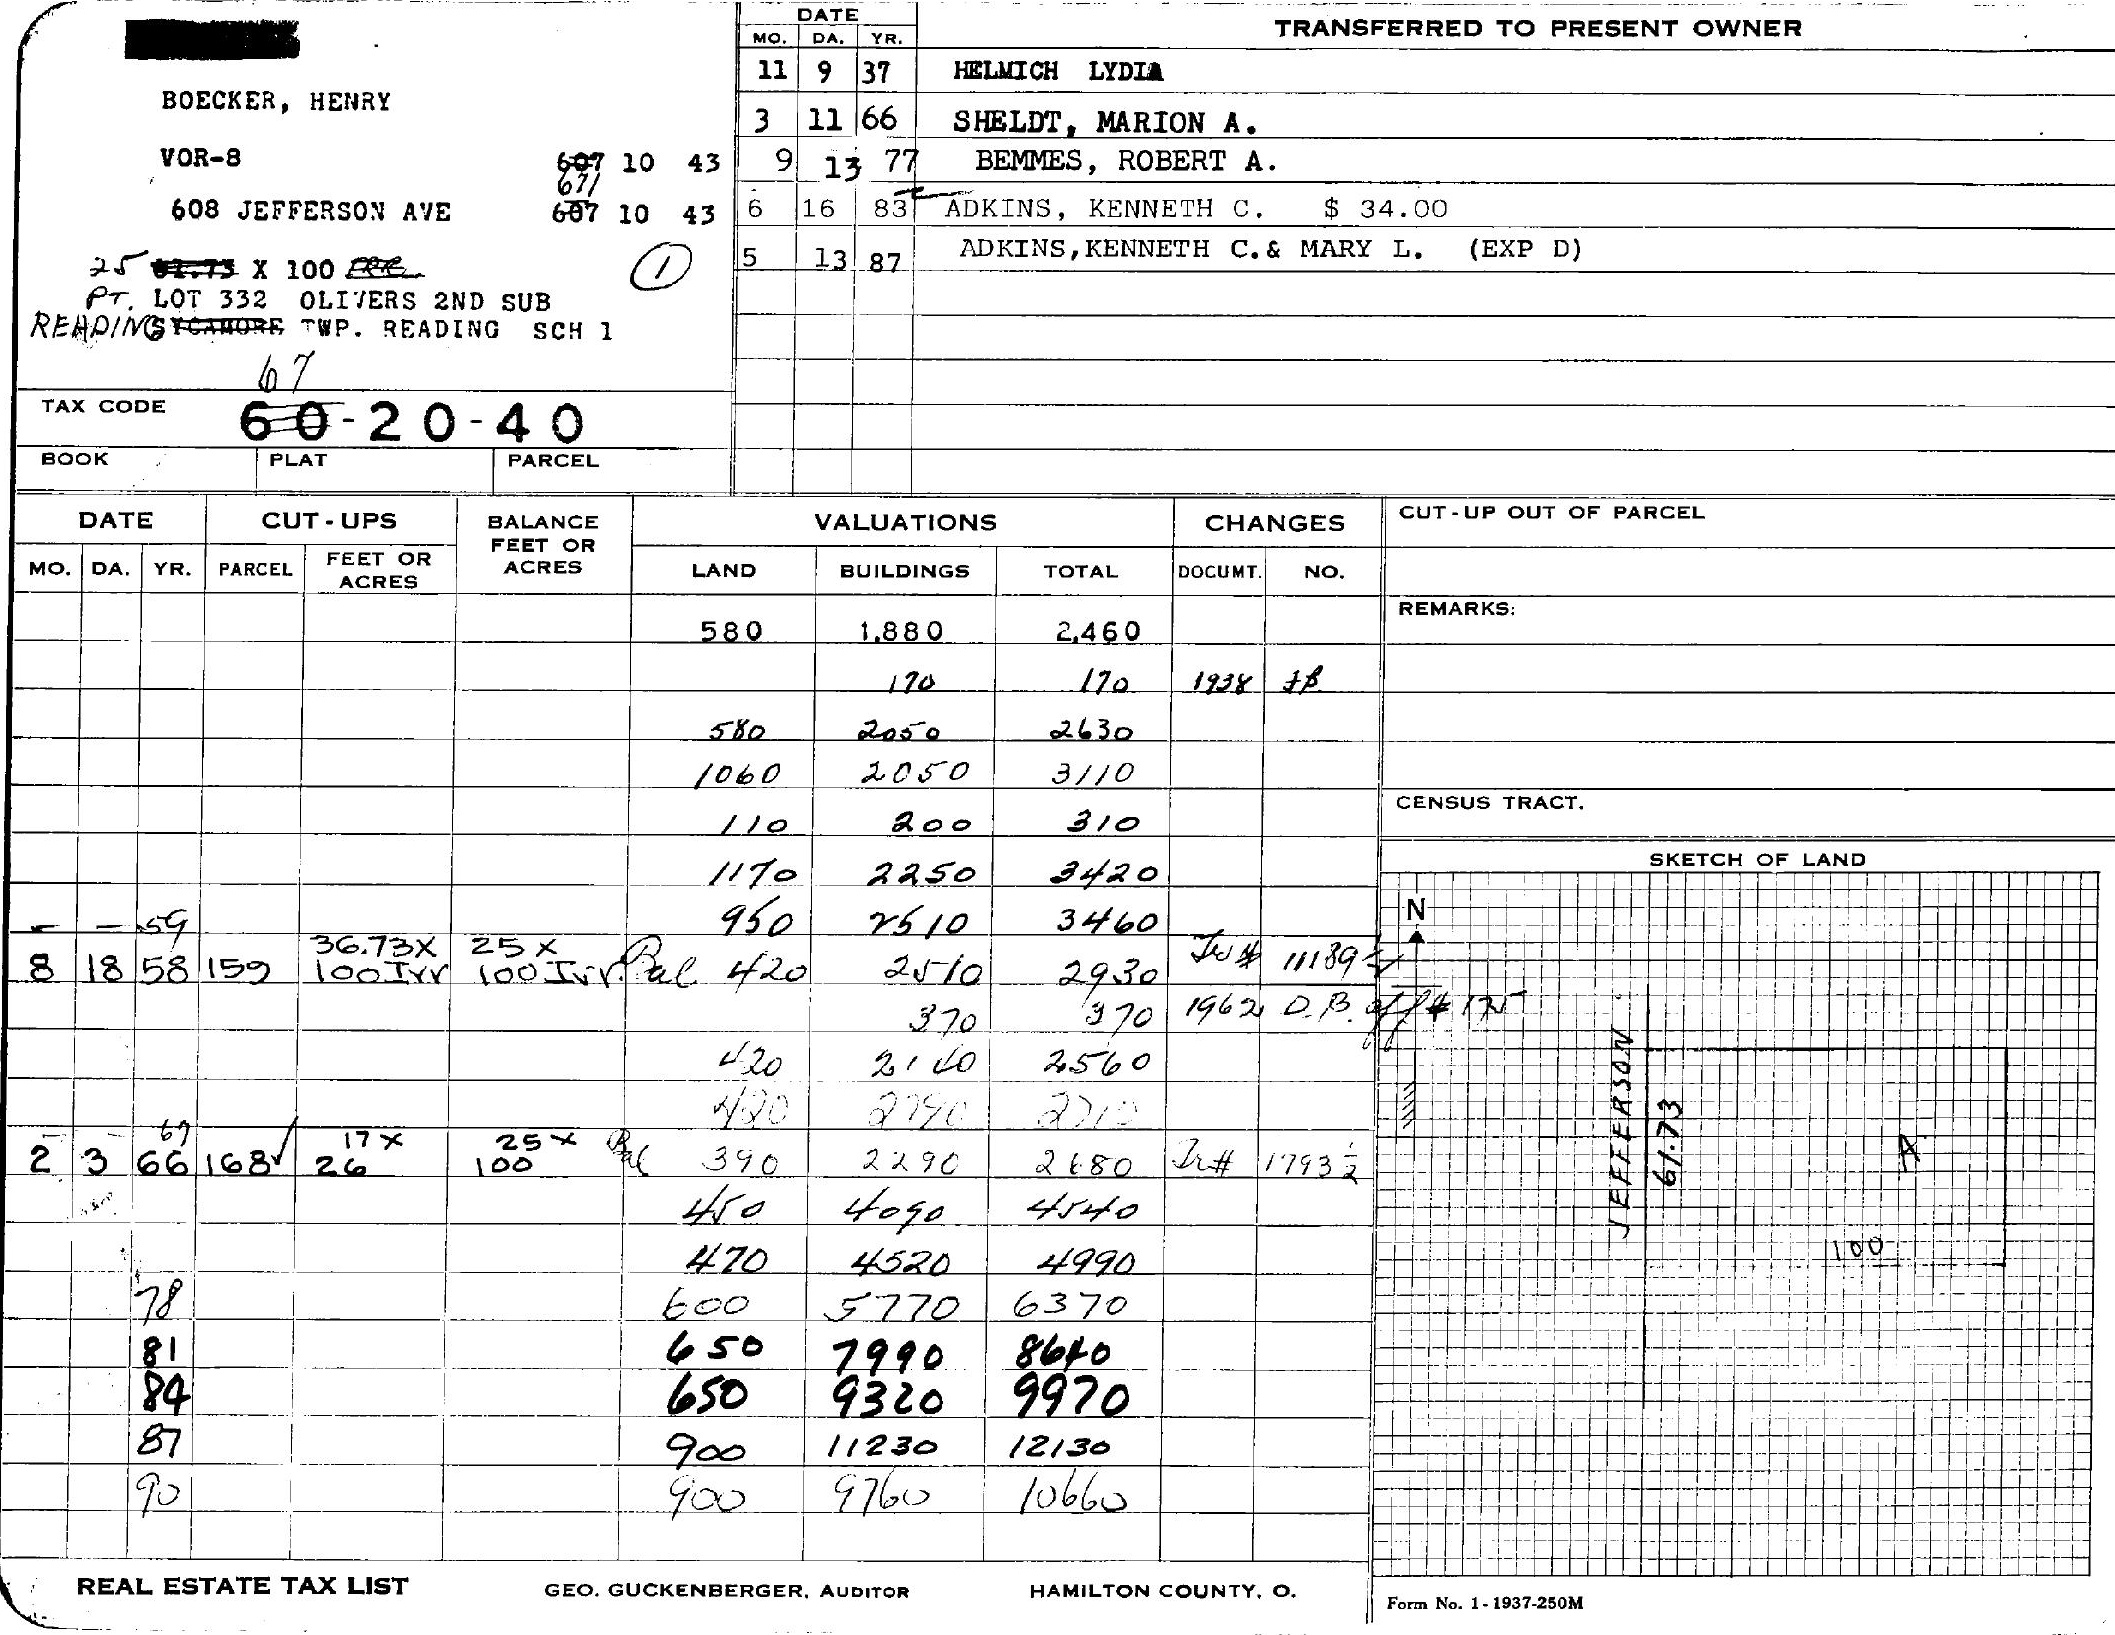 BOECKER, HENRY
VOR-8 607 10 43
671
608 JEFFERSON AVE 607 10 43
25 61.73 X 100 IRR
1
PT. LOT 332 OLIVERS 2ND SUB
READING SYCAMORE TWP. READING SCH 1
67
TAX CODE 60-20-40
BOOK PLAT PARCEL
DATE TRANSFERRED TO PRESENT OWNER
MO. DA. YR.
11 9 37 HELMICH LYDIA
3 11 66 SHELDT, MARION A.
9 13 77 BEMMES, ROBERT A.
6 16 83 ADKINS, KENNETH C. $ 34.00
5 13 87 ADKINS,KENNETH C.& MARY L. (EXP D)
DATE CUT-UPS BALANCE FEET OR ACRES VALUATIONS CHANGES
MO. DA. YR. PARCEL FEET OR ACRES LAND BUILDINGS TOTAL DOCUMT. NO.
580 1,880 2,460
170 170 1938
580 2050 2630
1060 2050 3110
110 200 310
1170 2250 3420
- - 59 950 2510 3460
8 18 58 159 36.73X 100 Irr 25 X 100 Irr. Bal 420 2510 2930 Tr# 11189
370 370 1962 D.B. off # 175
420 2140 2560
420 2290 2710
67
2 3 66 168✓ 17 X 26 25 X 100 Bal 390 2290 2680 Tr# 1793 1/2
450 4090 4540
470 4520 4990
78 600 5770 6370
81 650 7990 8640
84 650 9320 9970
87 900 11230 12130
90 900 9760 10660
CUT-UP OUT OF PARCEL
REMARKS:
CENSUS TRACT.
SKETCH OF LAND
N
JEFFERSON
61.73
A
100
REAL ESTATE TAX LIST GEO. GUCKENBERGER, AUDITOR HAMILTON COUNTY, O.
Form No. 1-1937-250M